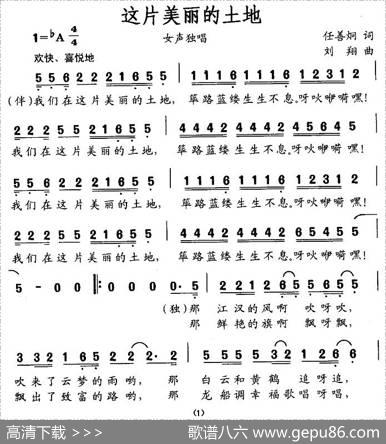 这片美丽的土地
1=♭A 4/4
女声独唱
任善炯 词
刘翔 曲
欢快、喜悦地
5 5 6 5 2 2 2 2 1 6 5 5 | 1 1 1 6 1 1 1 6 1 2 3 1 2
(伴)我们在这片美丽的土地, 筚路蓝缕生生不息。呀吙咿嗬嘿!
2 2 2 5 5 2 2 1 6 5 5 | 4 4 4 2 4 4 4 2 4 5 6 4 5
我们在这片美丽的土地, 筚路蓝缕生生不息。呀吙咿嗬嘿!
5 5 6 5 2 2 2 1 6 5 5 | 1 1 1 6 1 1 1 6 1 2 3 1 2
我们在这片美丽的土地, 筚路蓝缕生生不息。呀吙咿嗬嘿!
2 2 2 5 5 2 2 1 6 5 5 | 4 4 4 2 4 4 4 2 4 5 6 4 5
我们在这片美丽的土地, 筚路蓝缕生生不息。呀吙咿嗬嘿!
5 - 0 0 ‖: 0 0 0 0· 5 | 2 2 1 2 6 1 2 6 5
(独)那 江汉的风啊 吹呀吹,
那 鲜艳的旗啊 飘呀飘,
3 3 2 1 6 5 2 2 2· 2 | 5 5 2 5 3 2 1 2 1 6
吹来了云梦的雨哟, 那 白云和黄鹤 追呀追,
飘出了致富的路哟, 那 龙船调幸福歌唱呀唱,
(1)
高清下载 >>>
歌谱八六 www.gepu86.com